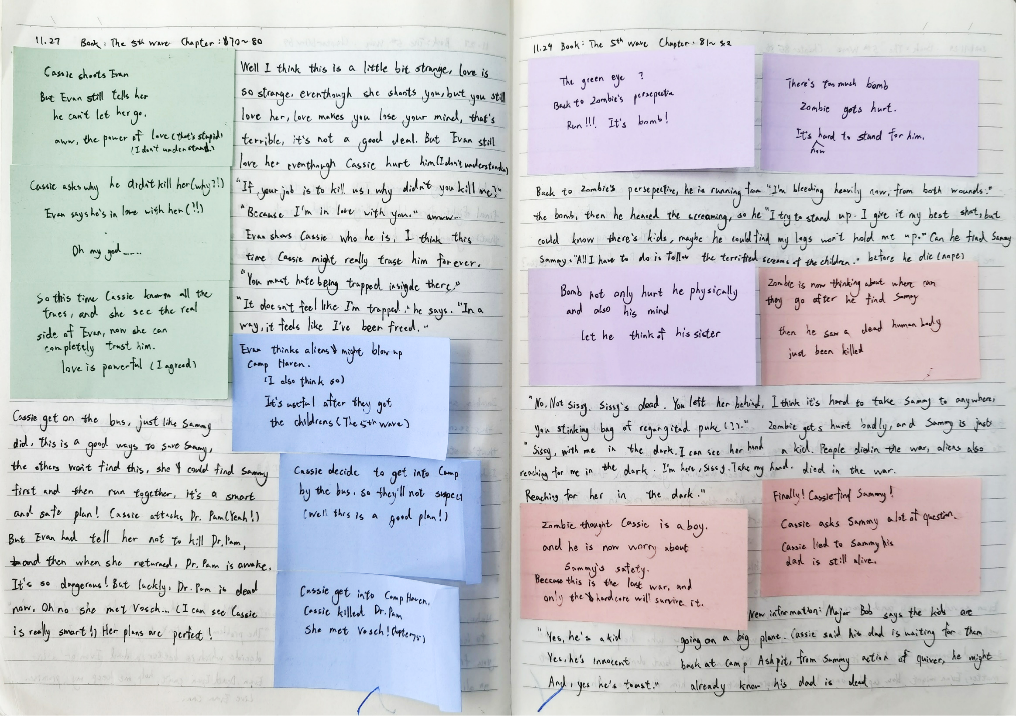 11.27 Book: The 5th wave Chapter: 70~80
Cassie shoots Evan
But Evan still tells her
he can't let her go.
aww, the power of love (that's stupid)
(I don't understand)
Cassie asks why he didn't kill her (why?!)
Evan says he's in love with her (!!)
Oh my god......
So this time Cassie known all the
trues, and she see the real
side of Evan, now she can
completely trust him.
love is powerful (I agreed)
Well I think this is a little bit strange, love is
so strange, eventhough she shoots you, but you still
love her, love makes you lose your mind, that's
terrible, it's not a good deal. But Evan still
love her eventhough Cassie hurt him (I don't understand)
"If your job is to kill us, why didn't you kill me?"
"Because I'm in love with you." aww~
Evan shows Cassie who he is, I think this
time Cassie might really trust him forever.
"You must hate being trapped insigde there."
"It doesn't feel like I'm trapped." he says. "In a
way, it feels like I've been freed."
Evan thinks aliens might blow up
Camp Haven.
(I also think so)
It's useful after they got
the childrens (The 5th wave)
Cassie get on the bus, just like Sammy
did, this is a good ways to save Sammy,
the others won't find this, she could find Sammy
first and then run together, it's a smart
and safe plan! Cassie attacks Dr. Pam (Yeah!)
But Evan had tell her not to kill Dr. Pam,
and then when she returned, Dr. Pam is awake.
It's so dangerous! But luckly, Dr. Pam is dead
now. Oh no she met Vosch... (I can see Cassie
is really smart!) Her plans are perfect!
Cassie decide to get into Camp
by the bus, so they'll not suspect
(well this is a good plan!)
Cassie get into Camp Haven.
Cassie killed Dr. Pam
She met Vosch!
11.29 Book: The 5th wave Chapter: 81~82
The green eye?
Back to Zombie's persepective
Run!!! It's bomb!
There's too much bomb
Zombie gets hurt.
It's hard to stand for him.
now
Back to Zombie's persepective, he is running from "I'm bleeding heavily now, from both wounds."
the bomb, then he heared the screaming, so he "I try to stand up. I give it my best shot, but
could know there's kids, maybe he could find my legs won't hold me up." Can he find Sammy
Sammy. "All I have to do is follow the terrified screams of the children." before he die (nope)
Bomb not only hurt he physically
and also his mind
Let he think of his sister
Zombie is now thinking about where can
they go after he find Sammy
then he saw a dead human body
just been killed
"No. Not Sissy. Sissy's dead. You left her behind, I think it's hard to take Sammy to anywhere,
you stinking bag of regurgitated puke (??)." Zombie gets hurt badly, and Sammy is just
"Sissy, with me in the dark. I can see her hand a kid. People died in the war, aliens also
reaching for me in the dark. I'm here, Sissy. Take my hand. died in the war.
Reaching for her in the dark."
Zombie thought Cassie is a boy.
and he is now worry about
Sammy's safety.
Because this is the last war, and
only the hardcore will survive it.
Finally! Cassie find Sammy!
Cassie asks Sammy a lot of question.
Cassie lied to Sammy his
dad is still alive.
New information: Major Bob says the kids are
"Yes, he's a kid going on a big plane. Cassie said his dad is waiting for them
Yes, he's innocent back at Camp Ashpit, from Sammy action of quiver, he might
And, yes he's toast." already know his dad is dead